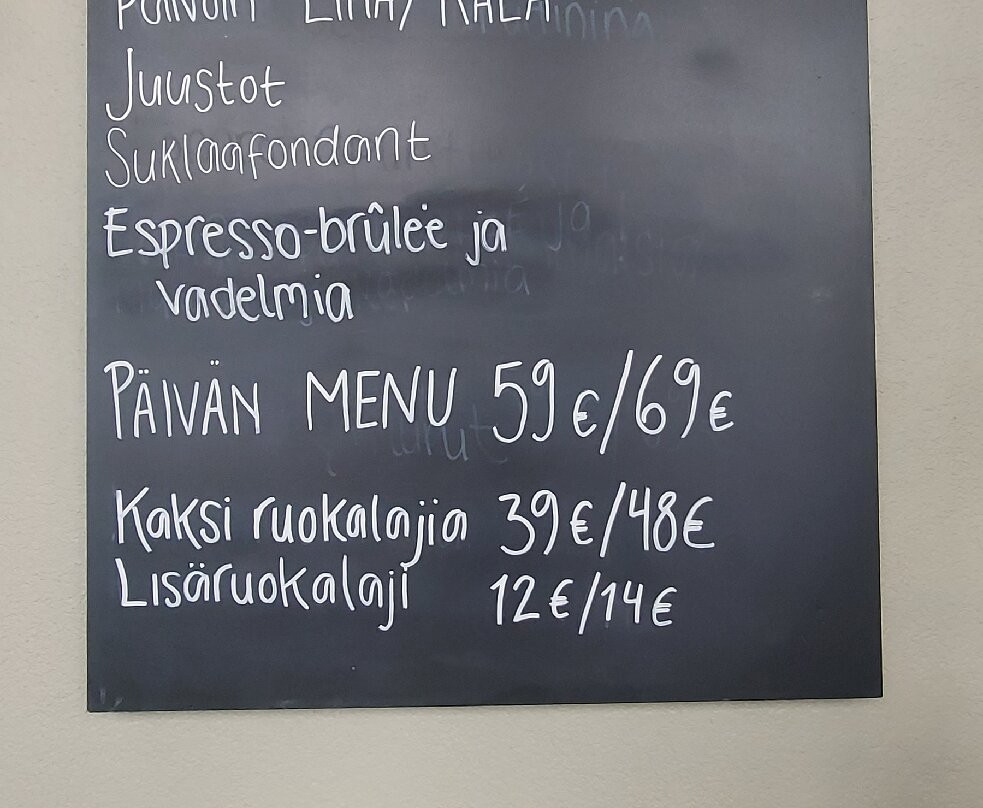 Juustot
Suklaafondant
Espresso-brûlée ja
vadelmia
PÄIVÄN MENU 59€/69€
Kaksi ruokalajia 39€/48€
Lisäruokalaji 12€/14€